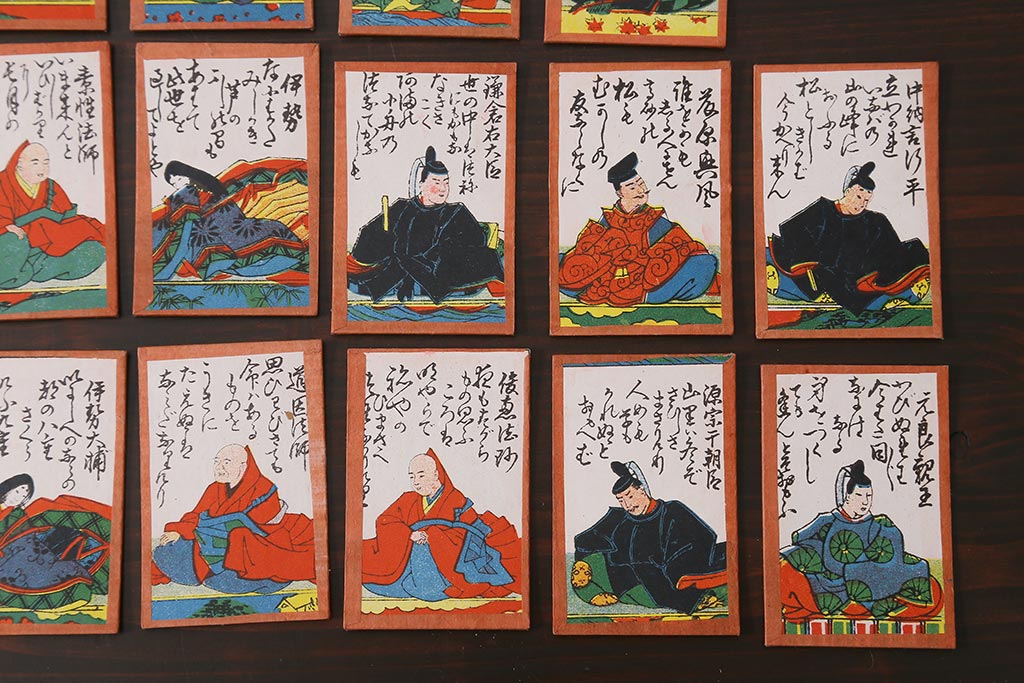 素性法師
いま来んと
いひしばかり
に
長月の
伊勢
なにはがた
みじかき
芦の
ふしの間も
あはで
此世を
過してよとや
鎌倉右大臣
世の中は常
にもがもな
なぎさこぐ
あまの
小舟の
つなでかなしも
藤原興風
誰をかも
しる人にせん
高砂の
松も
むかしの
友ならなくに
中納言行平
立わかれ
いなばの
山の峰に
おふる
松としきかば
今かへりこん
伊勢大輔
いにしへのならの
都の八重
さくら
けふ九重
道因法師
思ひわびさても
命はある
ものを
うきに
たへぬは
なみだなりけり
俊恵法師
夜もすがら
もの思ふ
ころは
明やらで
ねやの
ひまさへ
つれなかりけり
源宗于朝臣
山里は冬ぞ
さびしさ
まさりける
人めも
草も
かれぬと
おもへば
元良親王
わびぬれば
今はた同じ
なには
なる
身をつくし
ても
あはんとぞ思ふ